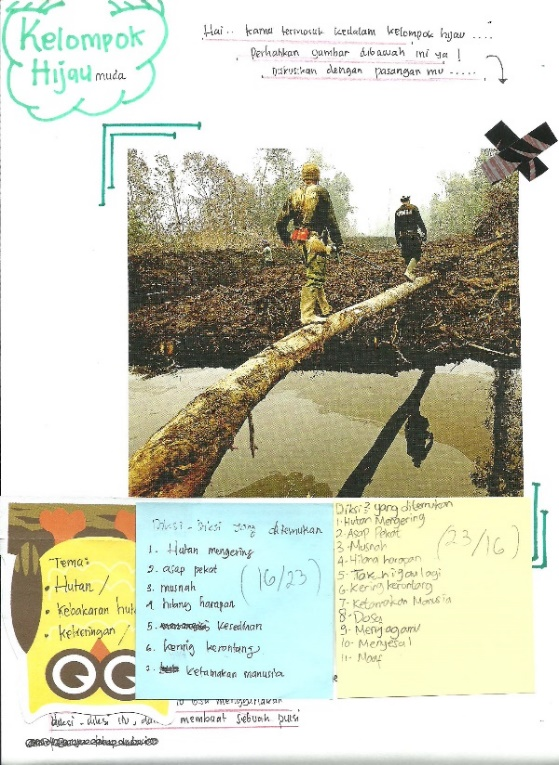 Kelompok
Hijau muda
Hai.. kamu termasuk kedalam kelompok hijau ....
Perhatikan gambar dibawah ini ya !
Diskusikan dengan pasangan mu .....
Tema:
• Hutan /
• Kebakaran hut
• kekeringan /
Diksi - Diksi yang ditemukan
1. Hutan mengering
2. asap pekat
3. musnah
4. hilang harapan
5. kesedihan
6. kering kerontang
7. ketamakan manusia
(16/23)
Diksi² yang ditemukan
1. Hutan Mengering
2. Asap Pekat
3. Musnah
4. Hilang harapan
5. Tak hijau lagi
6. Kering kerontang
7. Ketamakan Manusia
8. Dosa
9. Menyayangmu
10. Menyesal
11. Maaf
(23/16)
diksi - diksi itu, membuat sebuah puisi